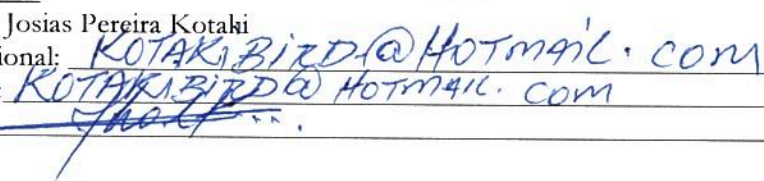 Josias Pereira Kotaki
ional: KOTAKIBIRD@HOTMAIL.COM
: KOTAKIBIRD@HOTMAIL.COM